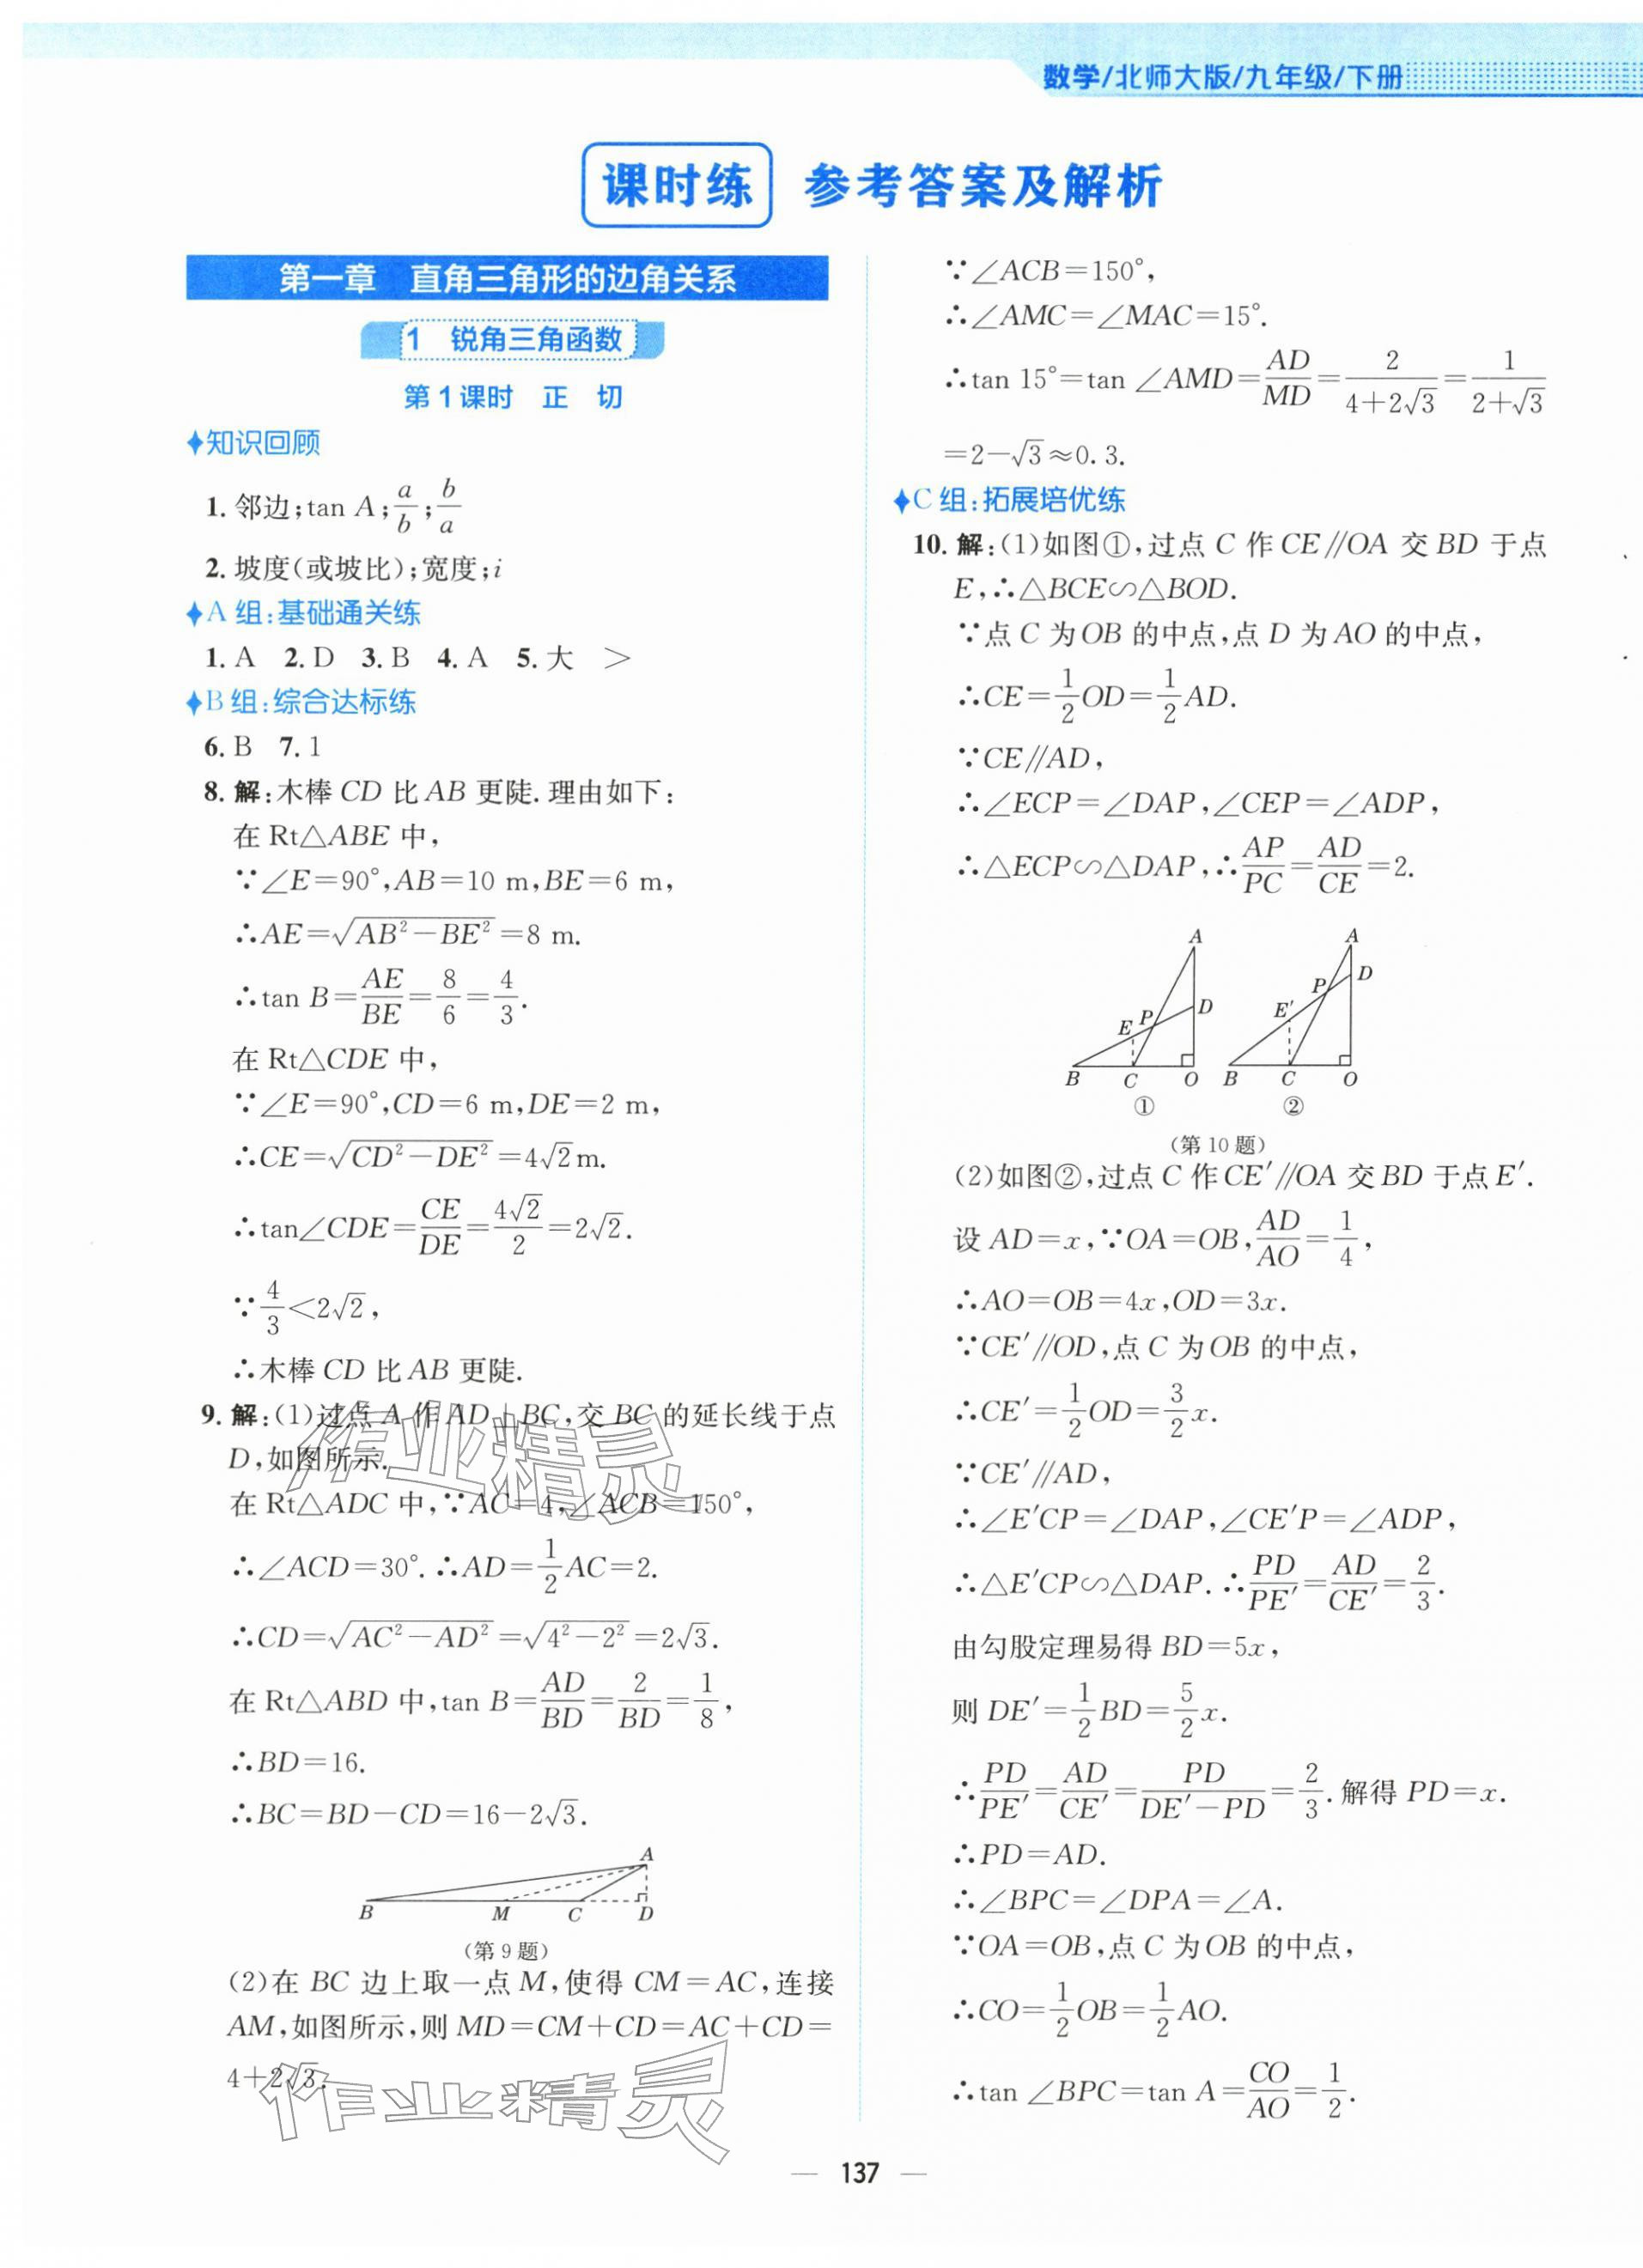 数学/北师大版/九年级/下册
课时练 参考答案及解析
第一章 直角三角形的边角关系
1 锐角三角函数
第1课时 正 切
知识回顾
1. 邻边;tan A;a/b;b/a
2. 坡度(或坡比);宽度;i
A 组:基础通关练
1. A 2. D 3. B 4. A 5. 大 >
B 组:综合达标练
6. B 7. 1
8. 解:木棒 CD 比 AB 更陡. 理由如下:
在 Rt△ABE 中,
∵∠E=90°,AB=10 m,BE=6 m,
∴AE=√(AB²-BE²)=8 m.
∴tan B=AE/BE=8/6=4/3.
在 Rt△CDE 中,
∵∠E=90°,CD=6 m,DE=2 m,
∴CE=√(CD²-DE²)=4√2 m.
∴tan∠CDE=CE/DE=4√2/2=2√2.
∵4/3<2√2,
∴木棒 CD 比 AB 更陡.
9. 解:(1)过点 A 作 AD⊥BC,交 BC 的延长线于点
D,如图所示.
在 Rt△ADC 中,∵AC=4,∠ACB=150°,
∴∠ACD=30°. ∴AD=1/2AC=2.
∴CD=√(AC²-AD²)=√(4²-2²)=2√3.
在 Rt△ABD 中,tan B=AD/BD=2/BD=1/8,
∴BD=16.
∴BC=BD-CD=16-2√3.
A
B M C D
(第 9 题)
(2)在 BC 边上取一点 M,使得 CM=AC,连接
AM,如图所示,则 MD=CM+CD=AC+CD=
4+2√3.
∵∠ACB=150°,
∴∠AMC=∠MAC=15°.
∴tan 15°=tan ∠AMD=AD/MD=2/(4+2√3)=1/(2+√3)
=2-√3≈0.3.
C 组:拓展培优练
10. 解:(1)如图①,过点 C 作 CE∥OA 交 BD 于点
E,∴△BCE∽△BOD.
∵点 C 为 OB 的中点,点 D 为 AO 的中点,
∴CE=1/2OD=1/2AD.
∵CE∥AD,
∴∠ECP=∠DAP,∠CEP=∠ADP,
∴△ECP∽△DAP,∴AP/PC=AD/CE=2.
A A
D
P
E′
E P D
B C O B C O
① ②
(第 10 题)
(2)如图②,过点 C 作 CE′∥OA 交 BD 于点 E′.
设 AD=x,∵OA=OB,AD/AO=1/4,
∴AO=OB=4x,OD=3x.
∵CE′∥OD,点 C 为 OB 的中点,
∴CE′=1/2OD=3/2x.
∵CE′∥AD,
∴∠E′CP=∠DAP,∠CE′P=∠ADP,
∴△E′CP∽△DAP. ∴PD/PE′=AD/CE′=2/3.
由勾股定理易得 BD=5x,
则 DE′=1/2BD=5/2x.
∴PD/PE′=AD/CE′=PD/(DE′-PD)=2/3. 解得 PD=x.
∴PD=AD.
∴∠BPC=∠DPA=∠A.
∵OA=OB,点 C 为 OB 的中点,
∴CO=1/2OB=1/2AO.
∴tan ∠BPC=tan A=CO/AO=1/2.
作业精灵
作业精灵
137